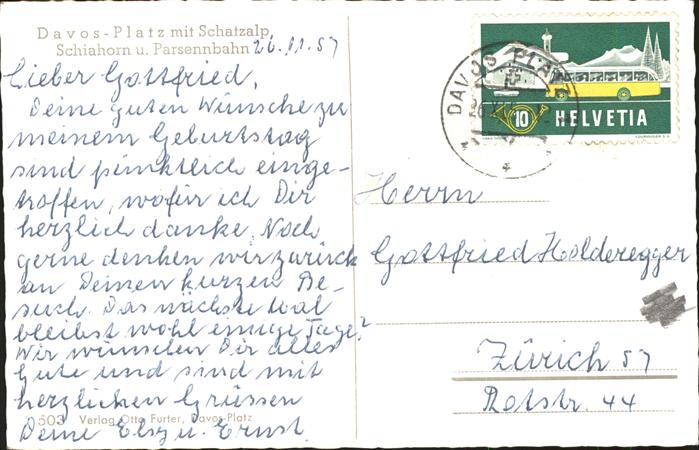 Davos-Platz mit Schatzalp,
Schiahorn u. Parsennbahn 26.11.57
Lieber Gottfried,
Deine guten Wünsche zu
meinem Geburtstag
sind pünktlich einge-
troffen, wofür ich Dir
herzlich danke. Noch
gerne denken wir zurück
an Deinen kurzen Be-
such. Das nächste Mal
bleibst wohl einige Tage?
Wir wünschen Dir alles
Gute und sind mit
herzlichen Grüssen
Deine Elsy u. Ernst.
503 Verlag Otto Furter, Davos-Platz
DAVOS PLATZ
10 HELVETIA
Herrn
Gottfried Holderegger
Zürich 57
Rotstr. 44